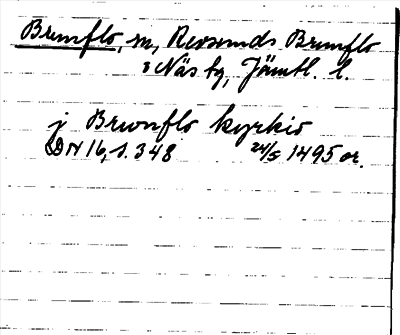 Brunflo, sn, Revsunds Brunflo
o Näs tg, Jämtl. l.
j Brwnflo kyrkio
DN 16, s. 348 24/5 1495 or.